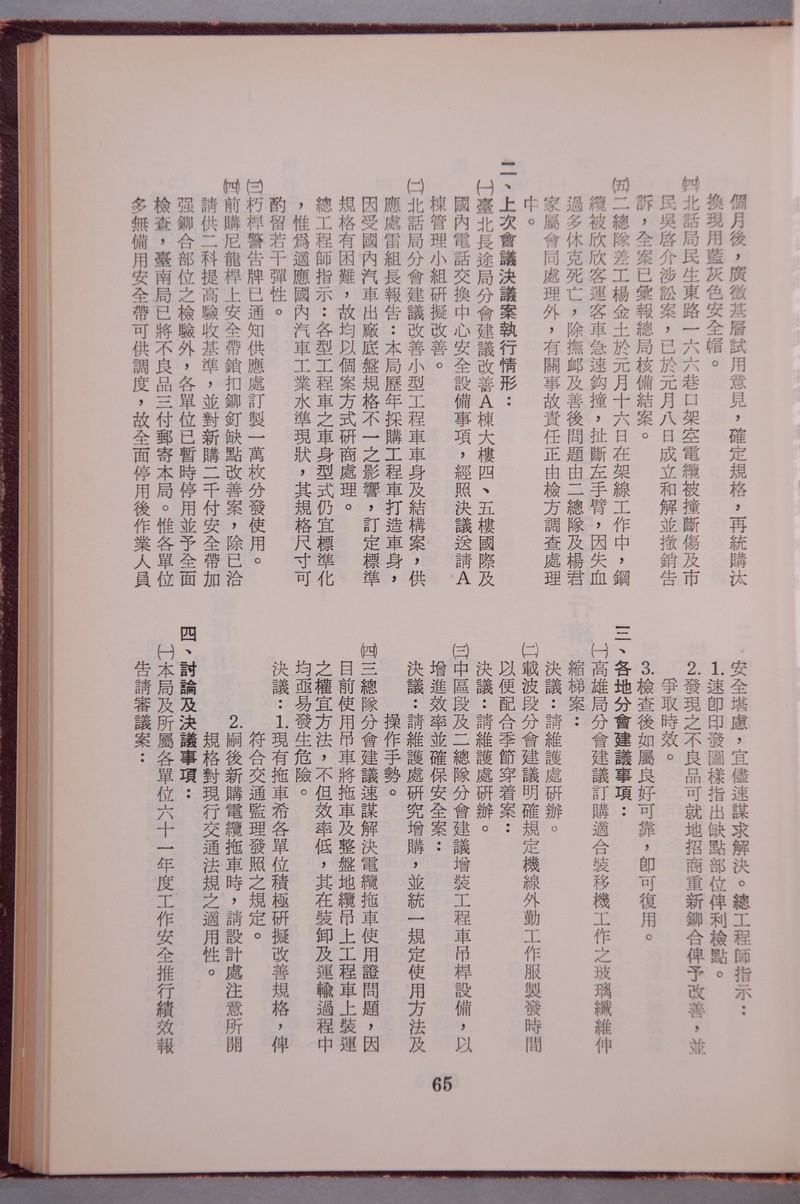 個月後，廣徵基層試用意見，確定規格，再統購汰
換現用藍灰色安全帽。
㈣北話局民生東路一六六巷口架空電纜被撞斷傷及市
民吳啓介涉訟案，已於元月八日成立和解並撤銷告
訴，全案已彙報總局核備結案。
㈤二總隊差工楊金土於元月十六日在架線工作中，鋼
纜被欣欣客運客車急速鈎撞，扯斷左手臂，因失血
過多休克死亡，除撫卹及善後問題由二總隊及楊君
家屬會同處理外，有關事故責任正由檢方調查處理
中。
二、上次會議決議案執行情形：
㈠臺北長途局分會建議改善A棟大樓四、五樓國際及
國內電話交換中心安全設備事項，經照決議送請A
棟管理小組研擬改善。
㈡北話局分會建議改善小型工程車車身及結構案，供
應處雷組長報告：本局歷年採購工程車打造車身，
因受國內汽車出廠底盤規格不一之影響，訂定標準
規格有困難，故均以個案方式研商處理。
總工程師指示：各型工程車之車身型式仍宜標準化
，惟爲適應國內汽車工業水準現狀，其規格尺寸可
酌留若干彈性。
㈢朽桿警告牌已通知供應處訂製一萬枚分發使用。
㈣前購尼龍桿上安全帶鎖扣鉚釘缺點改善案，除已洽
請供二科提高驗收基準，並對新購二千付安全帶加
强鉚合部位之檢驗外，各單位已暫時停用並予全面
檢查，臺南局已將不良品三付郵寄本局。惟各單位
多無備用安全帶可供調度，故全面停用後作業人員
安全堪慮，宜儘速謀求解決。總工程師指示：
1.速卽印發圖樣指出缺點部位俾利檢點。
2.發現之不良品可就地招商重新鉚合俾予改善，並
爭取時效。
3.檢查後如屬良好可靠，卽可復用。
三、各地分會建議事項：
㈠高雄局分會建議訂購適合裝移機工作之玻璃纖維伸
縮梯案：
決議：請維護處研辦。
㈡載波段分會建議明確規定機線外勤工作服製發時間
以便配合季節穿着案：
決議：請維護處研辦。
㈢中區段及二總隊分會建議增裝工程車吊桿設備，以
增進效率並確保安全案：
決議：請維護處研究增購，並統一規定使用方法及
操作手勢。
㈣三總隊分會建議速謀解決電纜拖車使用證問題，因
目前使用吊車將拖車及整盤地纜吊上工程車上裝運
之權宜方法，不但效率低，其在裝卸及運輸過程中
均亟易發生危險。
決議：1.現有拖車希各單位積極研擬改善規格，俾
符合交通監理發照之規定。
2.嗣後新購電纜拖車時，請設計處注意所開
規格對現行交通法規之適用性。
四、討論及決議事項：
㈠本局及所屬各單位六十一年度工作安全推行績效報
告請審議案：
65